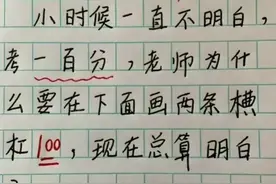 小时候一直不明白,
考一百分,老师为什
么要在下面画两条横
杠100,现在总算明白